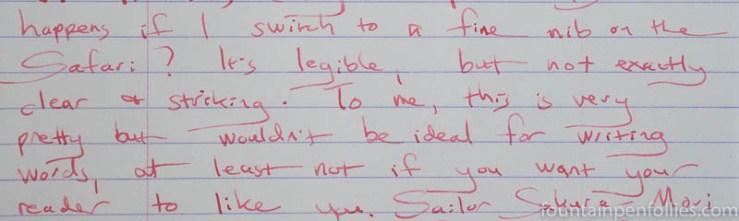 happens if I switch to a fine nib on the
Safari? It's legible, but not exactly
clear or striking. To me, this is very
pretty but wouldn't be ideal for writing
words, at least not if you want your
reader to like you. Sailor Sakura Mori
fountainpenfollies.com